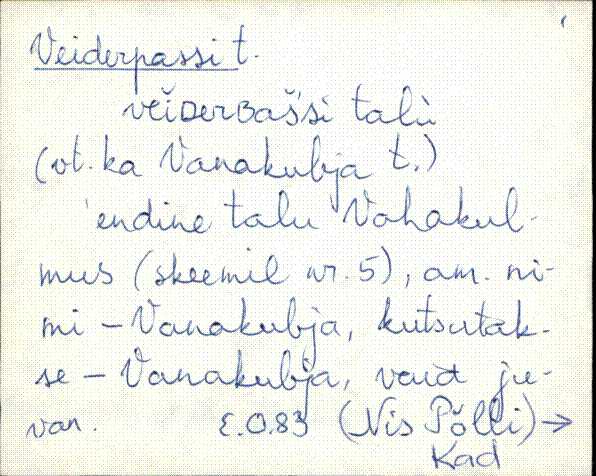 Veiderpassi t.
veiDerBaśśi talù
(vt. ka Vanakubja t.)
'endine talu Vahakul-
mus (skeemil nr. 5), am. ni-
mi - Vanakubja, kutsutak-
se - Vanakubja,
van. E.O.83 (Nis Põlli) →
Kad